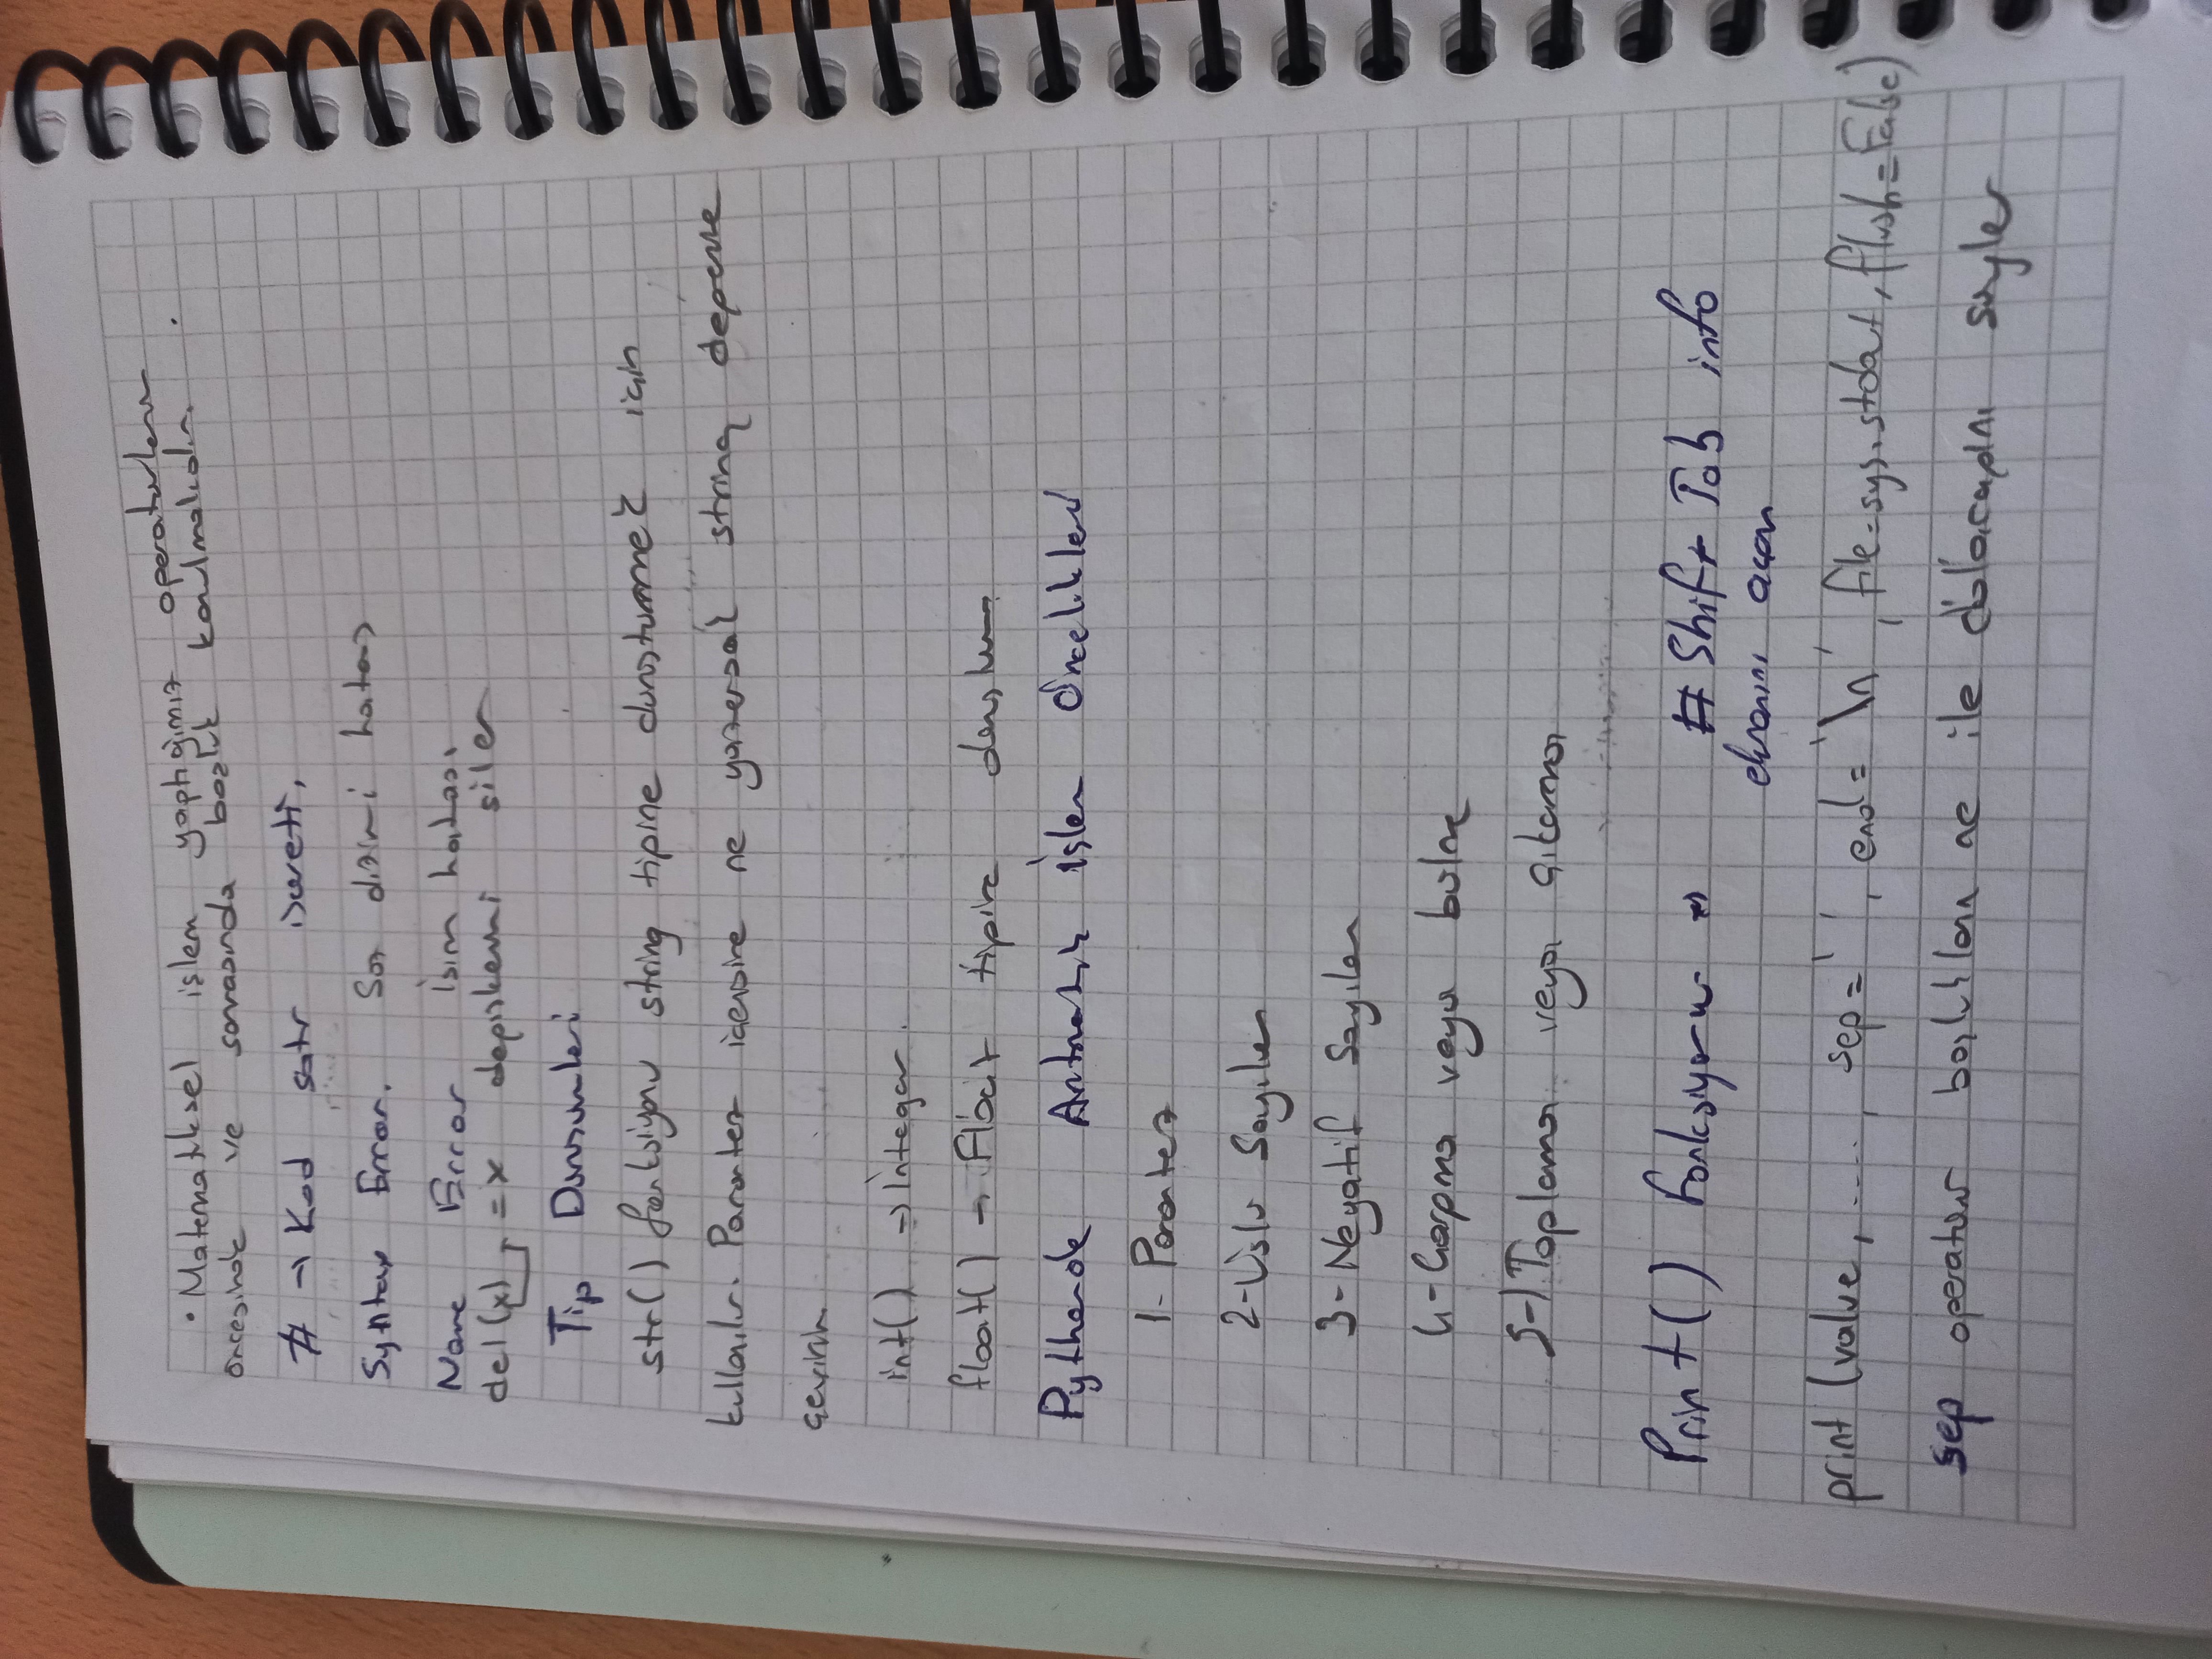 • Matematiksel işlem yaptığımız operatorlerin
öncesinde ve sonrasında boşluk konulmalıdır.
# → Kod satır işareti,
Syntax Error. Söz dizimi hatası
Name Error İsim hatası
del(x) = x değişkenini siler
Tip Dönüşümleri
str() fonksiyonu string tipine dönüştürmek için
kullanılır. Parantez içerisine ne yazarsak string değerine
çevirir
int() → İnteger.
float() → Float tipine dönüştürme
Pythonde Aritmetik İşlem Öncelikleri
1- Parantez
2- Üslü Sayılar
3- Negatif Sayılar
4- Çarpma veya bölme
5-) Toplama veya çıkarma
Print() fonksiyonu ⇒ # Shift Tab info
ekranını açar
print (value, ....., sep=' ', end='\n', file=sys.stdout, flush=False)
sep operatörü boşlukların ne ile dolacağını söyler